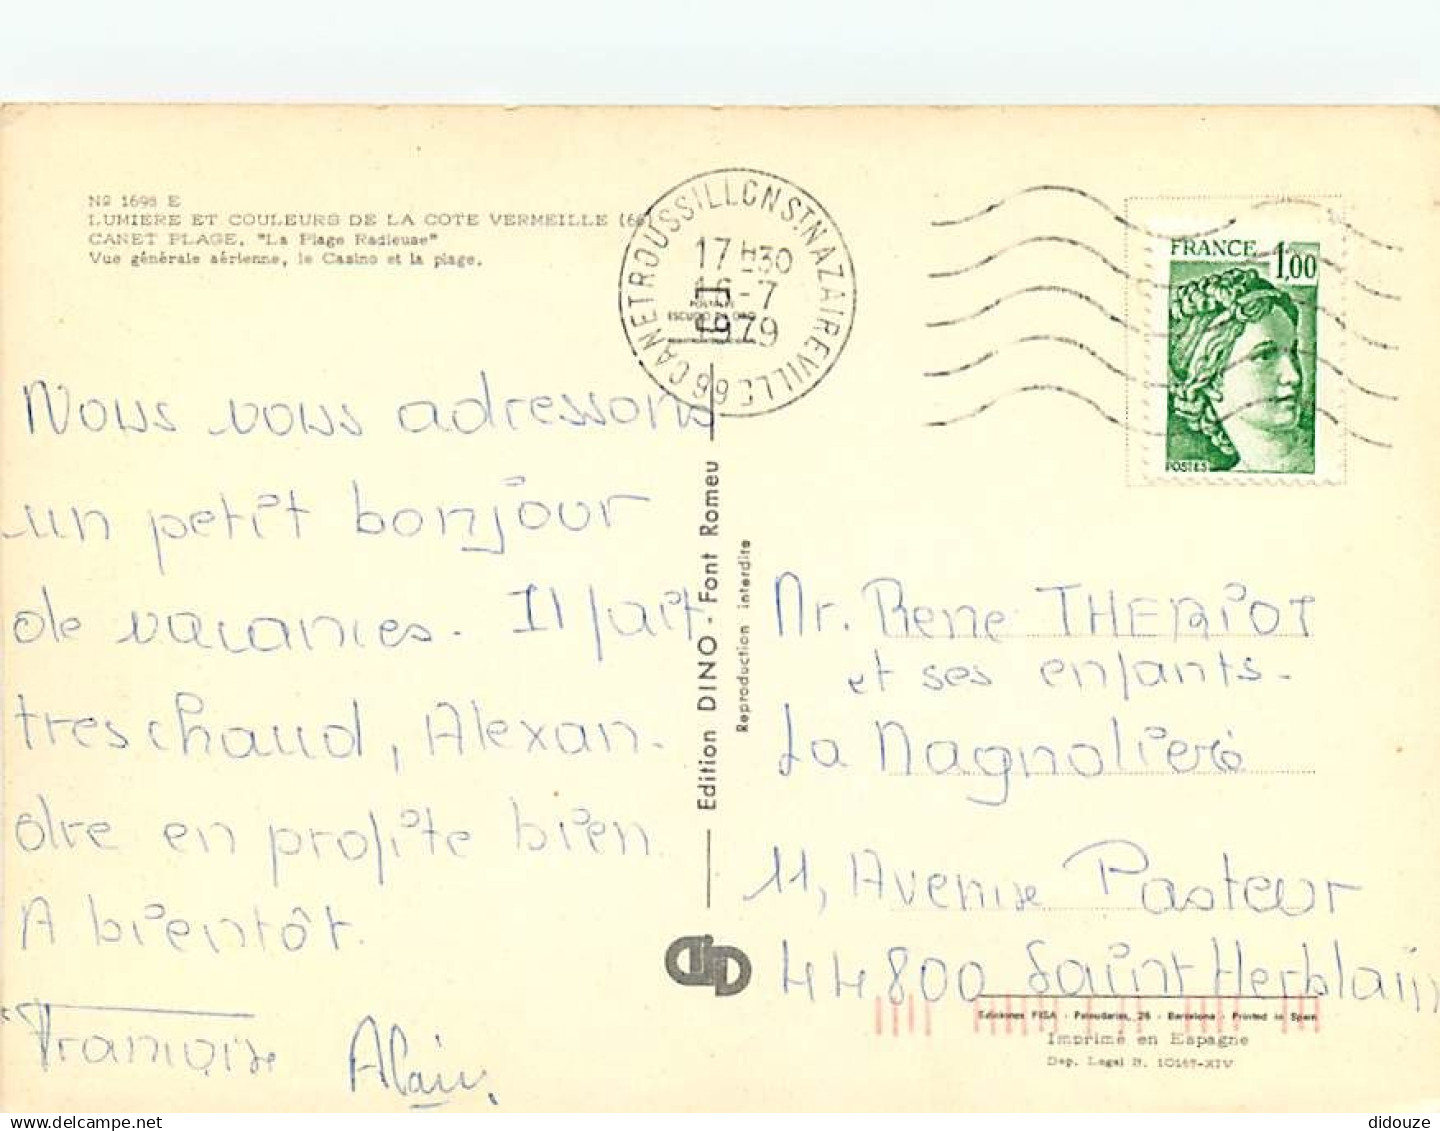 Nº 1698 E
LUMIERE ET COULEURS DE LA COTE VERMEILLE (66)
CANET PLAGE, "La Plage Radieuse"
Vue générale aérienne, le Casino et la plage.
66 CANET ROUSSILLON ST NAZAIRE VILLE
17H30
16-7
1979
POSTALES
ESCUDO DE ORO
FRANCE 1,00
POSTES
Nous vous adressons
un petit bonjour
de vacances. Il fait
tres chaud, Alexan-
dre en profite bien
A bientôt.
Francoise Alain
Edition DINO - Font Romeu
Reproduction interdite
Mr. Rene THERIOT
et ses enfants.
La Magnolieré
11, Avenue Pasteur
44800 Saint Herblain
FISA - Palaudarias, 26 - Barcelona - Printed in Spain
Imprimé en Espagne
Dep. Legal B. 10167-XIV
didouze